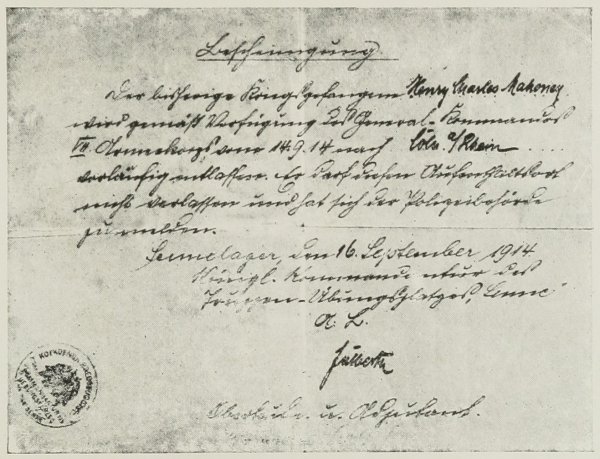 Bescheinigung
Der bisherige Kriegsgefangene Henry Charles Mahoney
wird gemäß Verfügung des General-Kommandos
VII Armeekorps vom 14.9.14 nach Cöln a/Rhein ....
vorläufig entlassen. Er darf diesen Aufenthaltsort
nicht verlassen und hat sich der Polizeibehörde
zu melden.
Sennelager, den 16. September 1914.
Königl. Kommandantur des
Truppen-Übungsplatzes, Senne